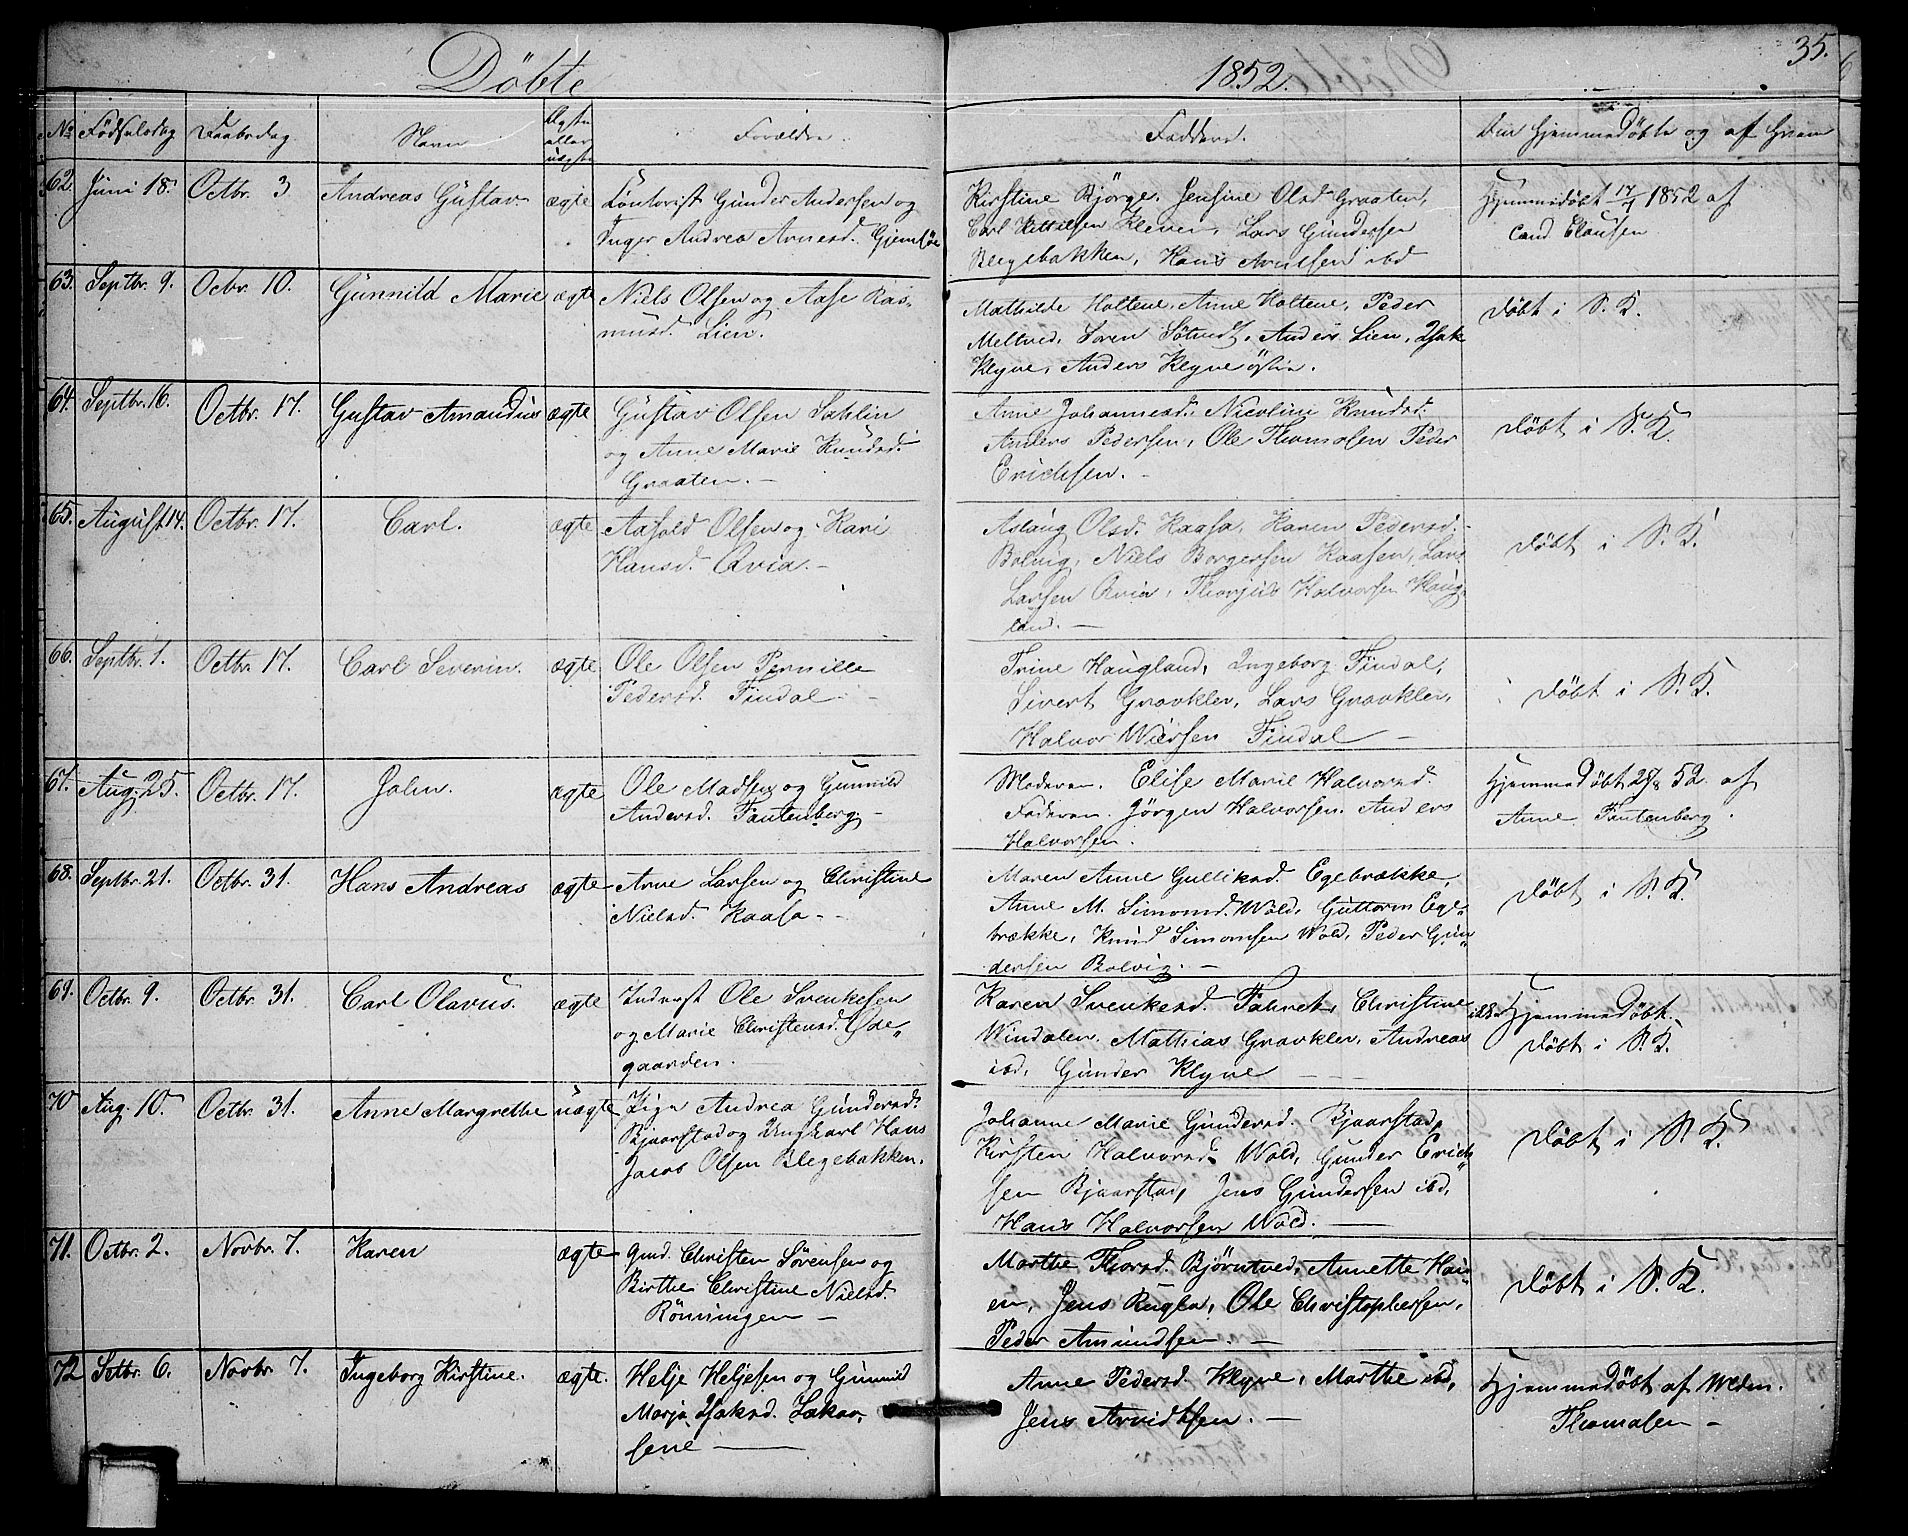 Döbte
1852.
35.
No Födselsdag Daabsdag Navn Ægte eller uægte Forældre Faddere. Om hjemmedöbte og af hvem
62. Juni 18. Octbr. 3 Andreas Gustav ægte
Gunder Andersen og
Inger Andrea Arnesd. Gjemsöe
Kirstine Björge, Jensine Olsd Graaten,
Carl Kittilsen Kleven, Lars Gundersen
Blegebakken, Hans Arntsen ibd
Hjemmedöbt 17/7 1852 af
Cand Clausen
63. Septbr. 9. Octbr. 10. Gunnild Marie ægte Niels Olsen og Aase Ras-
musd. Lien.
Mathilde Holtene, Anne Holtene, Peder
Meltved, Soren Sötvedt, Anders Lien, Isak
Klyve, Anders Klyve
döbt i S. K.
64. Septbr. 16. Octbr. 17. Gustav Amandus ægte Gustav Olsen Sahlin
og Anne Marie Knudsd.
Graaten. -
Anne Johannesd. Nicoline Knudsd.
Anders Pedersen, Ole Thomasen Peder
Erichsen. -
döbt i S. K.
65. August 14. Octbr. 17. Carl. ægte Aasold Olsen og Kari
Hansd. Qvia. -
Aslaug Olsd. Kaasa, Karen Pedersd. -
Bolvig, Niels Borgersen Kaasen, Lars
Larsen Qvia, Thorjus Halvorsen Haug-
land. -
döbt i S. K.
66. Septbr. 1. Octbr. 17. Carl Severin. ægte Ole Olsen Pernille
Pedersd. Findal -
Trine Haugland, Ingeborg Findal,
Sivert Gravklev, Lars Gravklev,
Halvor Wiersen Findal -
döbt i S. K.
67. Aug. 25. Octbr. 17. John. ægte Ole Madsen og Gunnild
Andersd. Tautenberg -
Moderen. Elise Marie Halvorsd.
Faderen. Jörgen Halvorsen. Anders
Halvorsen.
Hjemmedöbt 29/8 52. af
Anne Tautenberg.
68. Septbr. 21. Octbr. 31. Hans Andreas ægte Arne Larsen og Christine
Nielsd. Kaasa. -
Maren Anne Gulliksd. Egebrække,
Anne M. Simonsd. Wold, Guttorm Ege-
brække, Knud Simonsen Wold, Peder Gun-
dersen Bolvig. -
döbt i S. K.
69. Octbr. 9. Octbr. 31. Carl Olavus. ægte Inderst Ole Svenkesen
og Marie Christensd. Öde-
gaarden.
Karen Svenkesd. Fahret, Christine
Windalen, Mathias Gravklev, Andreas
ibd, Gunder Klyve -
ikke Hjemmedöbt.
döbt i S. K.
70 Aug. 10. Octbr. 31. Anne Margrethe uægte Pige Andrea Gundersd.
Bjaarstad og Ungkarl Hans
Jacob Olsen Blegebakken.
Johanne Marie Gundersd. Bjaarstad,
Kirsten Halvorsd. Wold, Gunder Erich-
sen Bjaarstad, Jens Gundersen ibd,
Hans Halvorsen Wold. -
döbt i S. K.
71. Octbr. 2. Novbr. 7. Karen ægte Gmd. Christen Sörensen og
Birthe Christine Nielsd.
Rönningen -
Marthe Thorsd. Björntved, Annette Hau-
en, Jens Rugla, Ole Christophersen,
Peder Amundsen. -
döbt i S. K.
72 Octbr. 6. Novbr. 7. Ingeborg Kirstine. ægte. Helje Heljesen og Gunnild
Marja Isaksd.
Anne Pedersd. Klyve, Marthe ibd,
Jens Arvidtsen. -
Hjemmedöbt af
Thomasen -